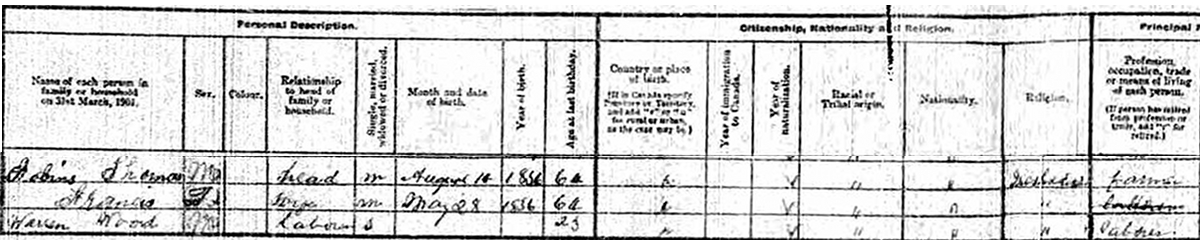 Personal Description. Citizenship, Nationality and Religion. Principal
Name of each person in family or household on 31st March, 1901. Sex. Colour. Relationship to head of family or household. Single, married, widowed or divorced. Month and date of birth. Year of birth. Age at last birthday. Country or place of birth. (If in Canada specify Province or Territory, and add "r" or "u" for rural or urban, as the case may be.) Year of immigration to Canada. Year of naturalization. Racial or Tribal origin. Nationality. Religion. Profession, occupation, trade or means of living of each person. (If person has retired from profession or trade, add "r" for retired.)
" "
Robins Thomas M head m August 1836 64 " " " farmer
Francis F m May 28 1836 64 " " "
Warren Wood M Laborer S 23 " " " Laborer